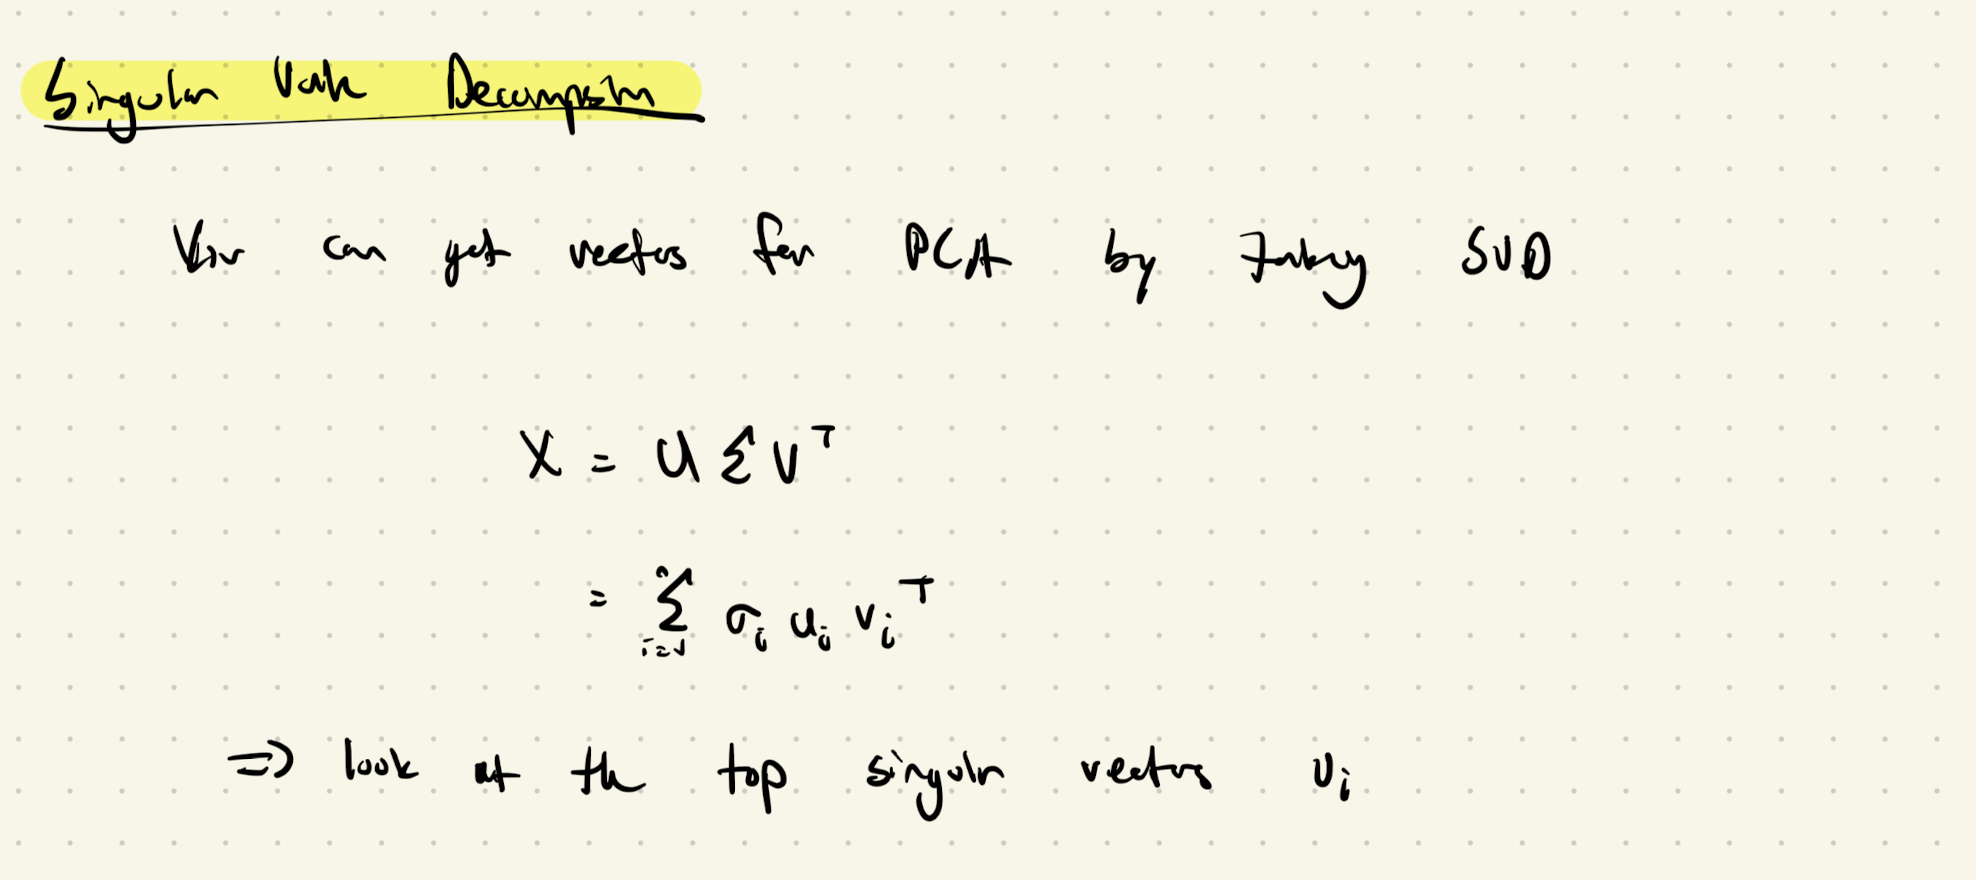 Singular Value Decomposition
You can get vectors for PCA by taking SVD
X = U Σ V^T
= Σ_{i=1}^{n} σ_i u_i v_i^T
=> look at the top singular vectors u_i